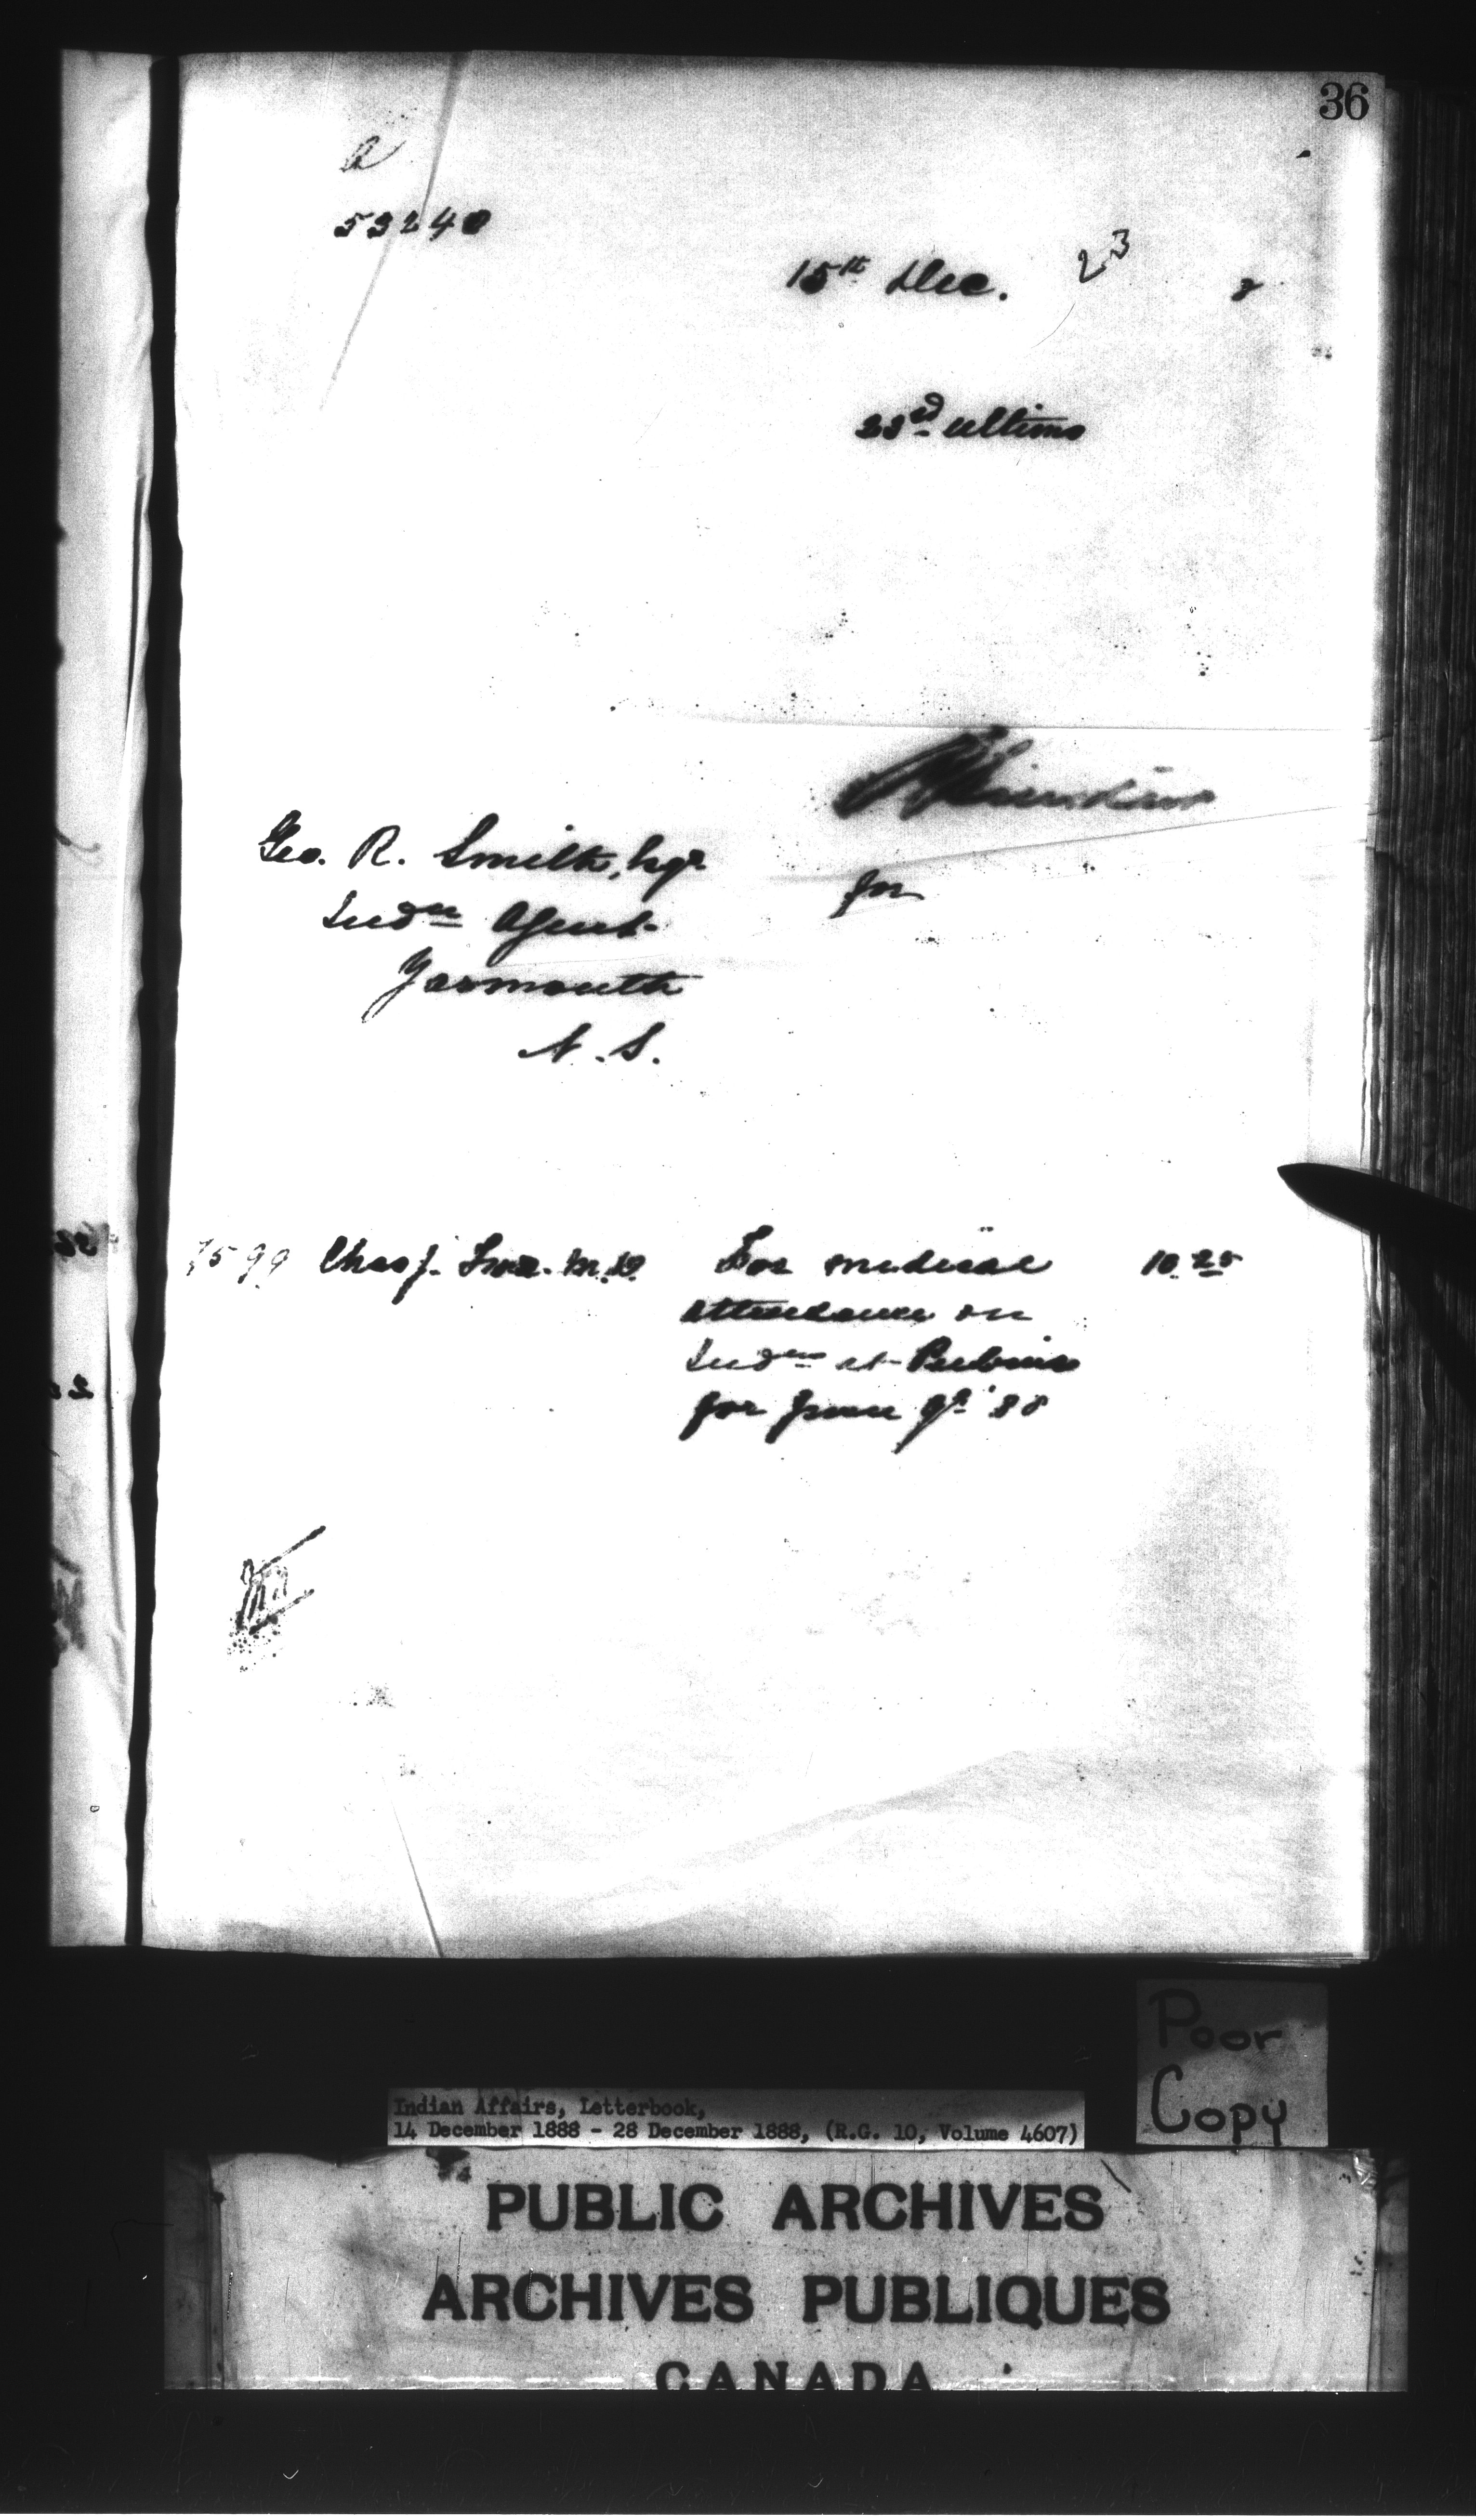 36
a
53240
15th Dec. 23 8
23rd ultimo
for
Geo. R. Smith, Esqr
Indn Agent
Yarmouth
N. S.
7599 Chas J. M.D. For medical 10.25
attendance on
Indns at Pubnico
for June qr '88
Poor
Copy
Indian Affairs, Letterbook,
14 December 1888 - 28 December 1888, (R.G. 10, Volume 4607)
PUBLIC ARCHIVES
ARCHIVES PUBLIQUES
CANADA